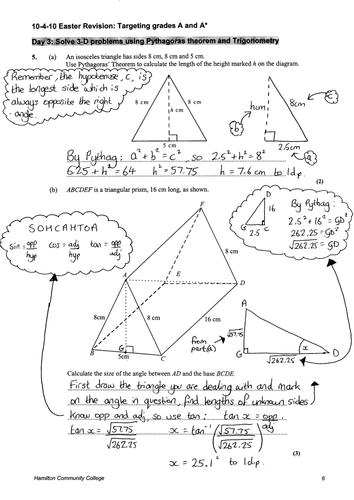 10-4-10 Easter Revision: Targeting grades A and A*
Day 3: Solve 3-D problems using Pythagoras theorem and Trigonometry
5. (a) An isosceles triangle has sides 8 cm, 8 cm and 5 cm.
Use Pythagoras' Theorem to calculate the length of the height marked h on the diagram.
Remember, the hypotenuse, c, is
the longest side which is
always opposite the right
-angle.
8 cm
8 cm
h cm
5 cm
hcm
8cm
c
b
2.5cm
a
By Pythag: a² + b² = c², so 2.5² + h² = 8²
6.25 + h² = 64 h² = 57.75 h = 7.6 cm to 1d.p.
(2)
(b) ABCDEF is a triangular prism, 16 cm long, as shown.
SOHCAHTOA
Sin = opp/hyp cos = adj/hyp tan = opp/adj
F
8 cm
E
D
A
8cm
8 cm
16 cm
B
G
C
5cm
D
16
G
2.5
C
By Pythag:
2.5² + 16² = GD²
262.25 = GD²
√262.25 = GD
A
from
part(a)
√57.75
G
x
D
√262.25
Calculate the size of the angle between AD and the base BCDE.
First draw the triangle you are dealing with and mark
on the angle in question, find lengths of unknown sides
Know opp and adj, so use tan: tan x = opp/adj
tan x = √57.75/√262.25 x = tan⁻¹(√57.75/√262.25)
(3)
x = 25.1° to 1d.p.
Hamilton Community College
6